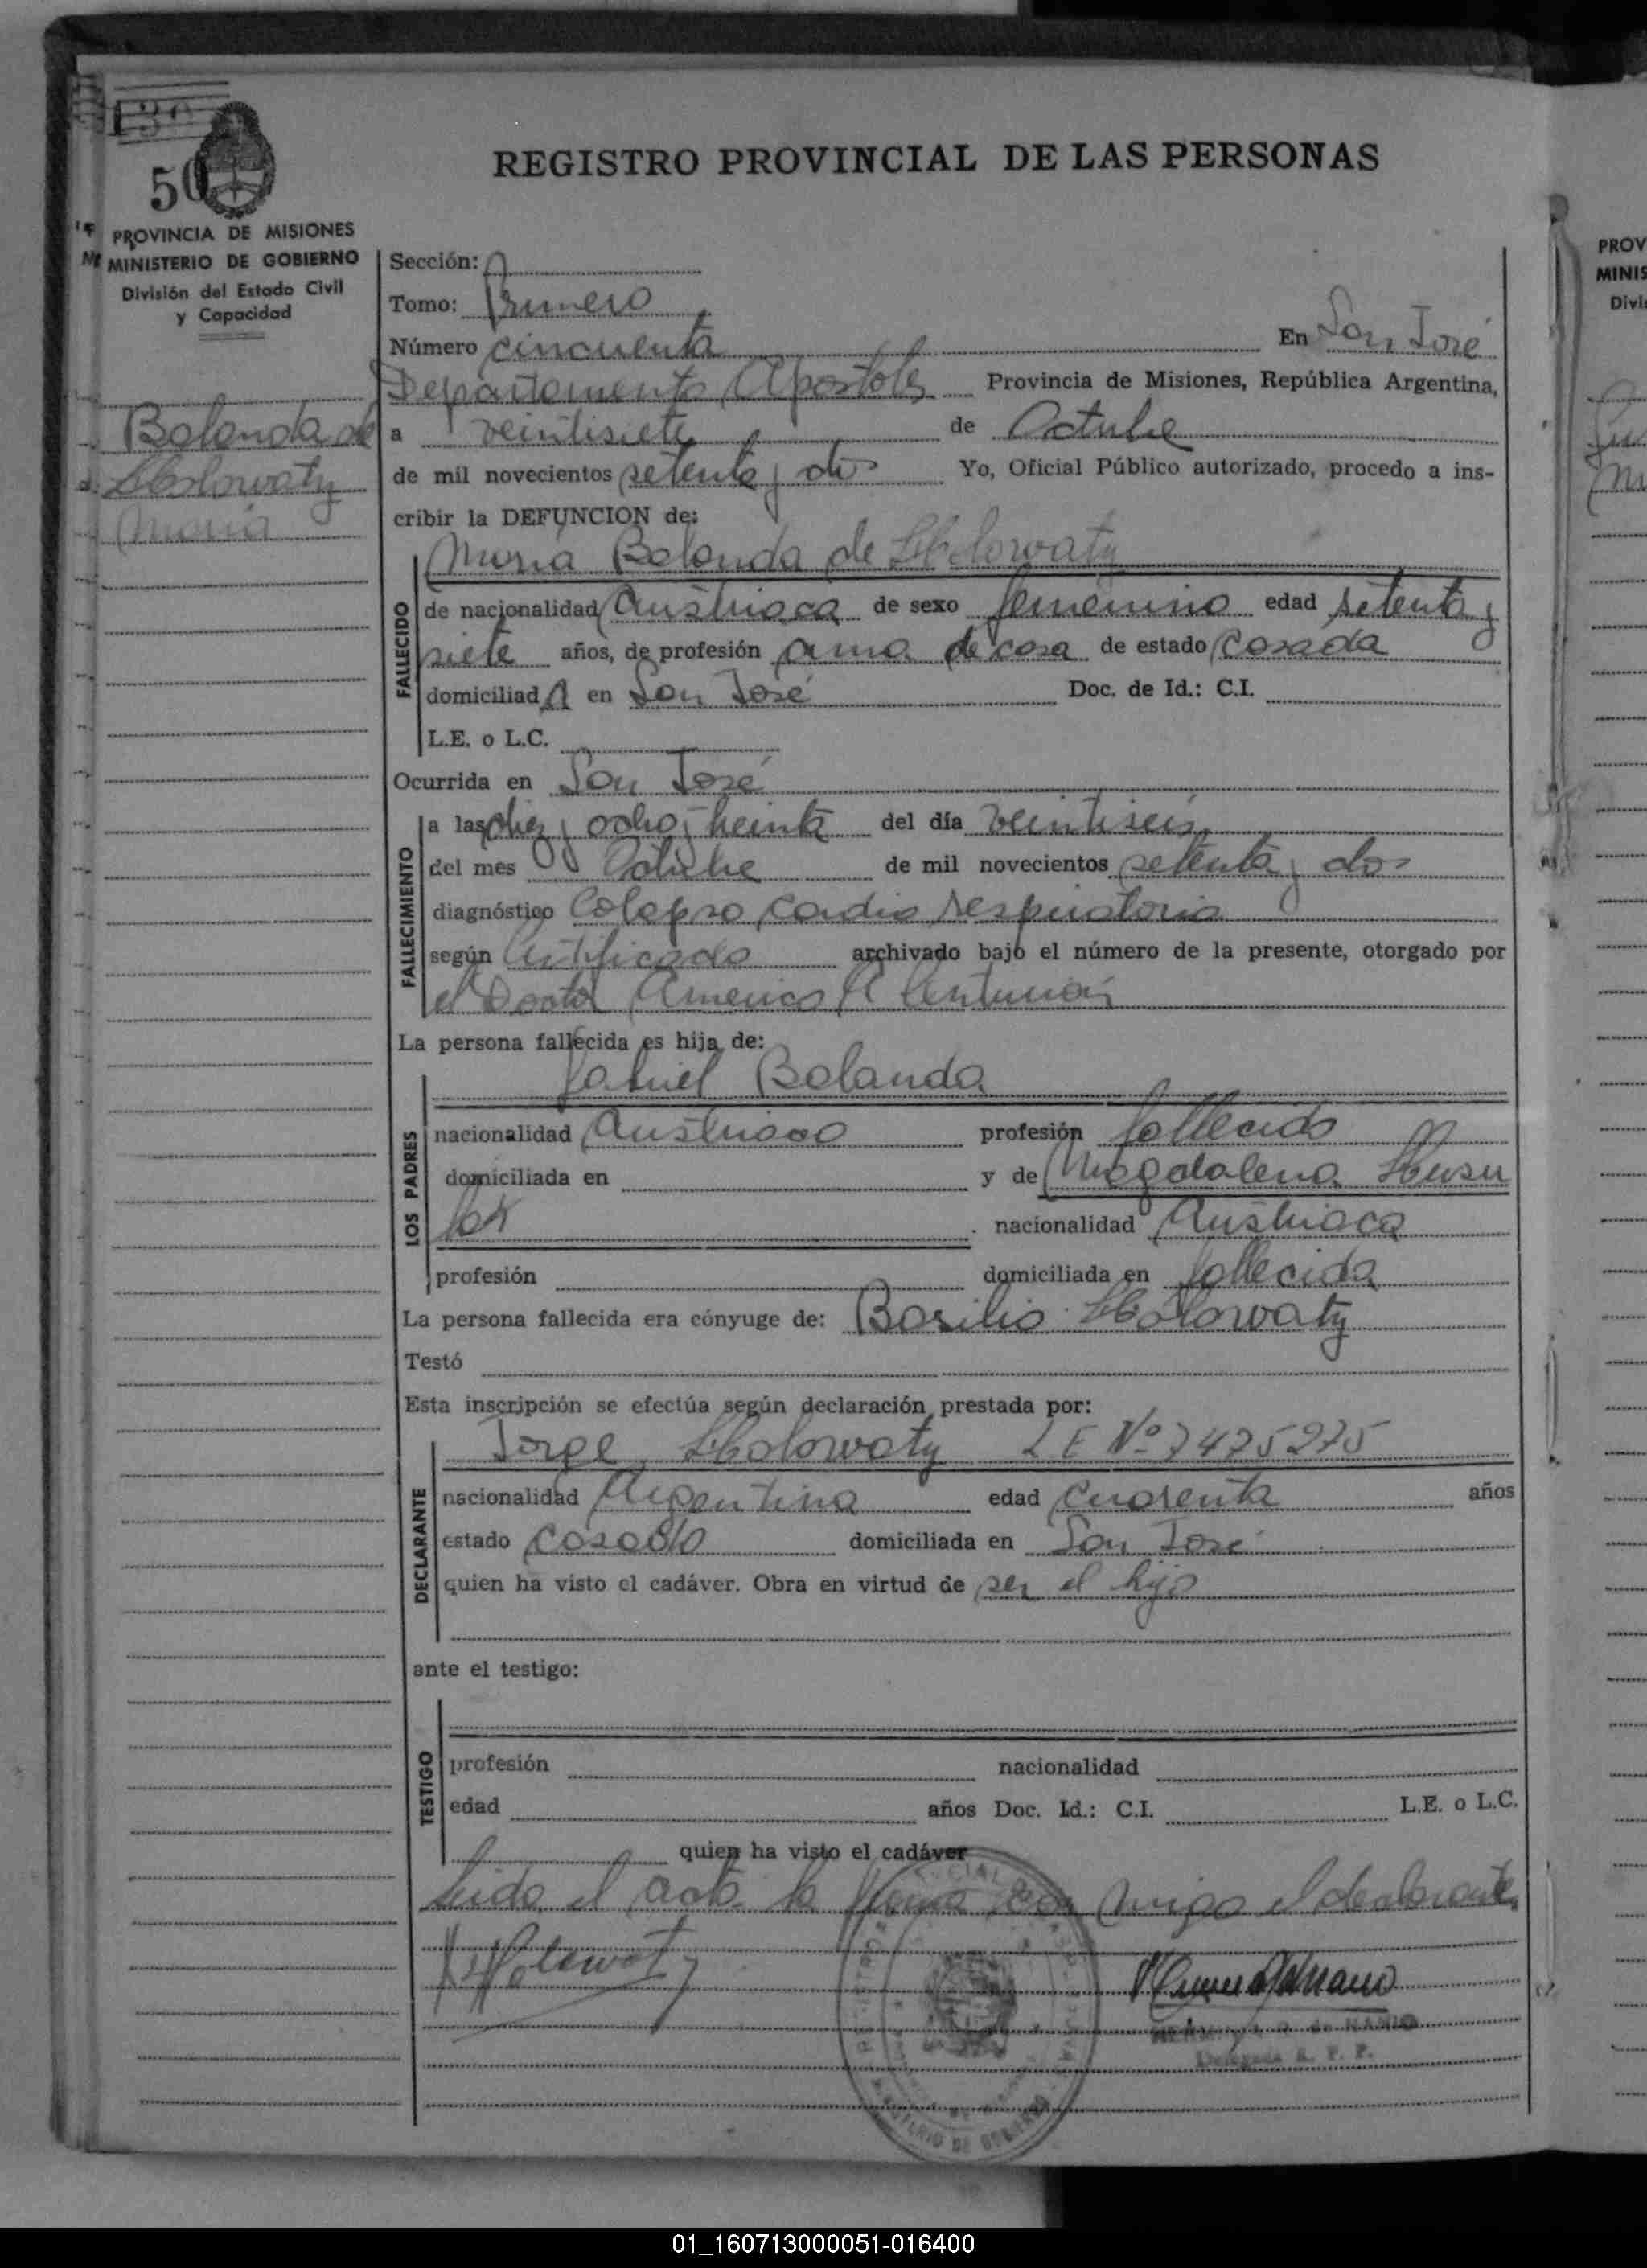 130
50
REGISTRO PROVINCIAL DE LAS PERSONAS
PROVINCIA DE MISIONES
MINISTERIO DE GOBIERNO
División del Estado Civil
y Capacidad
Bolanda de
Holowaty
María
Sección:
Tomo: Primero
Número cincuenta En San José
Departamento Apóstoles Provincia de Misiones, República Argentina,
a veintisiete de Octubre
de mil novecientos setenta y dos Yo, Oficial Público autorizado, procedo a ins-
cribir la DEFUNCION de:
María Bolanda de Holowaty
FALLECIDO
de nacionalidad Austriaca de sexo femenino edad setenta y
siete años, de profesión ama de casa de estado casada
domiciliada en San José Doc. de Id.: C.I.
L.E. o L.C.
Ocurrida en San José
FALLECIMIENTO
a las diez y ocho y treinta del día veintiseis
del mes Octubre de mil novecientos setenta y dos
diagnóstico Colapso cardio respiratorio
según Certificado archivado bajo el número de la presente, otorgado por
el Doctor Americo A Centurión
La persona fallecida es hija de:
LOS PADRES
Gabriel Bolanda
nacionalidad Austriaco profesión fallecido
domiciliada en y de Magdalena
nacionalidad Austriaca
profesión domiciliada en fallecida
La persona fallecida era cónyuge de: Basilio Holowaty
Testó
Esta inscripción se efectúa según declaración prestada por:
DECLARANTE
Jorge Holowaty L E Nº 7475275
nacionalidad Argentina edad cuarenta años
estado casado domiciliada en San José
quien ha visto el cadáver. Obra en virtud de ser el hijo
ante el testigo:
TESTIGO
profesión nacionalidad
edad años Doc. Id.: C.I. L.E. o L.C.
quien ha visto el cadáver
Leida el acta la firma con migo el declarante
Holowaty
Delegada R. P. P.
MINISTERIO DE GOBIERNO
PROV
MINIS
Divis
01_160713000051-016400